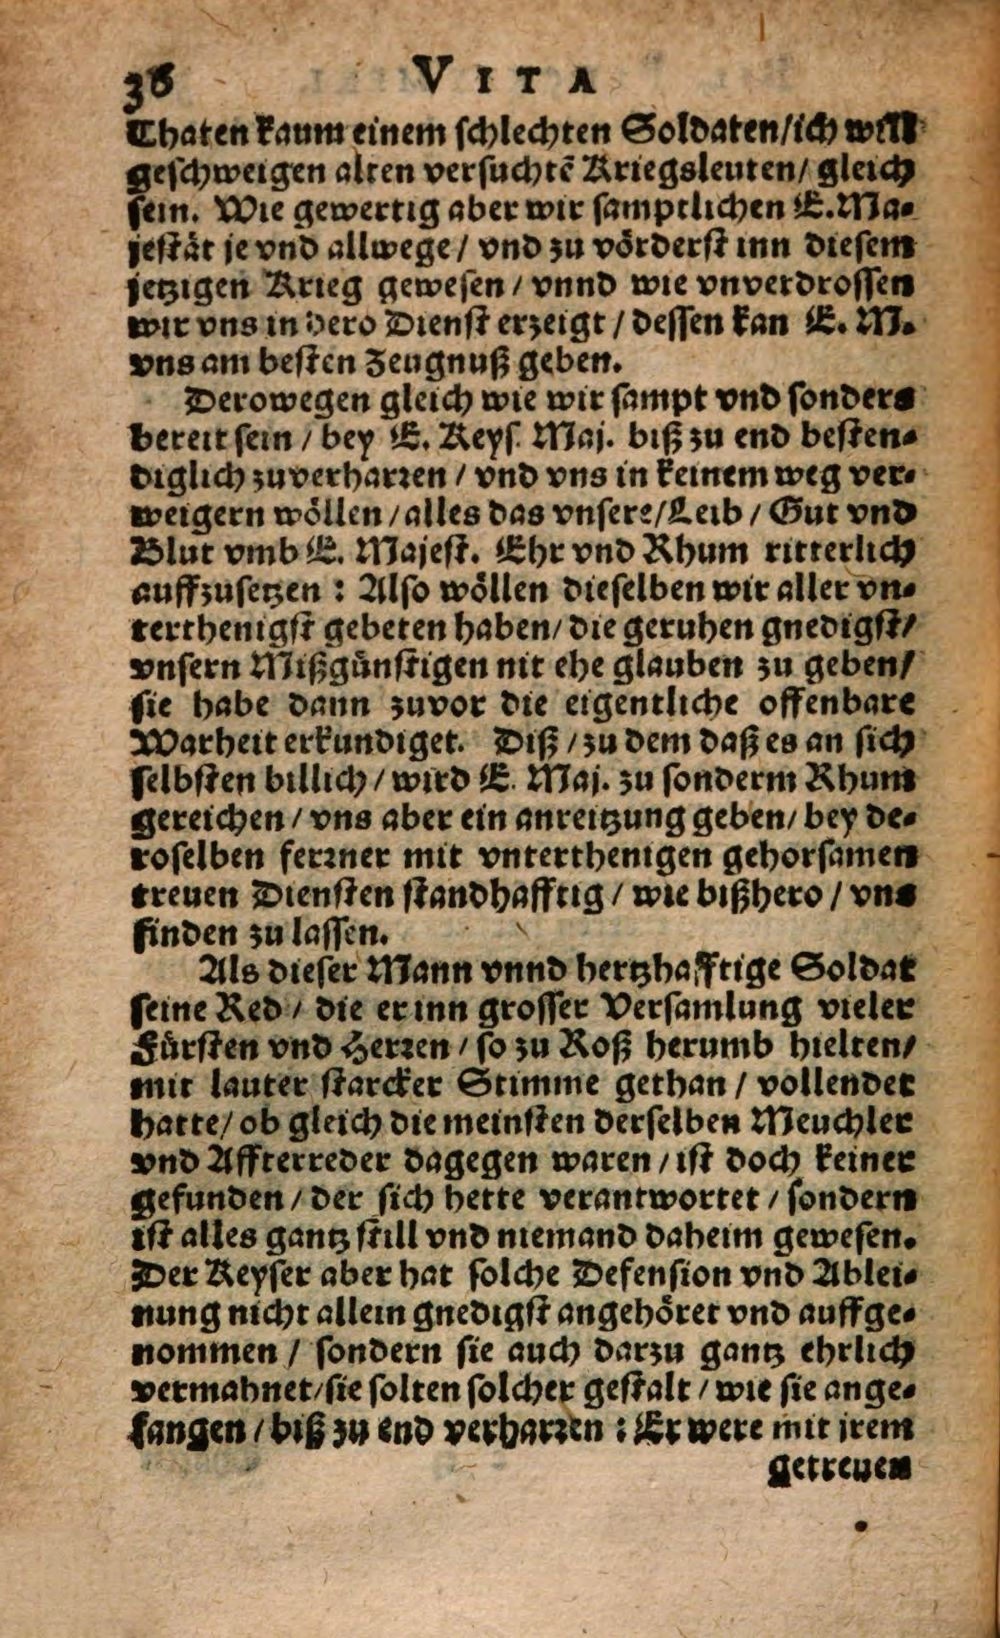 36 VITA
Thaten kaum einem schlechten Soldaten/ich will
geschweigen alten versuchtẽ Kriegsleuten/ gleich
sein. Wie gewertig aber wir samptlichen E.Ma-
jestät je vnd allwege / vnd zu vörderst inn diesem
jetzigen Krieg gewesen / vnnd wie vnverdrossen
wir vns in dero Dienst erzeigt / dessen kan E. M.
vns am besten Zeugnuß geben.
Derowegen gleich wie wir sampt vnd sonders
bereit sein / bey E. Keys. Maj. biß zu end besten-
diglich zuverharren / vnd vns in keinem weg ver-
weigern wöllen / alles das vnsere/Leib / Gut vnd
Blut vmb E. Majest. Ehr vnd Rhum ritterlich
auffzusetzen : Also wöllen dieselben wir aller vn-
terthenigst gebeten haben/ die geruhen gnedigst/
vnsern Mißgünstigen nit ehe glauben zu geben/
sie habe dann zuvor die eigentliche offenbare
Warheit erkundiget. Diß / zu dem daß es an sich
selbsten billich / wird E. Maj. zu sonderm Rhum
gereichen / vns aber ein anreitzung geben/ bey de-
roselben ferrner mit vnterthenigen gehorsamen
treuen Diensten standhafftig / wie bißhero / vns
finden zu lassen.
Als dieser Mann vnnd hertzhafftige Soldat
seine Red / die er inn grosser Versamlung vieler
Fürsten vnd Herren / so zu Roß herumb hielten/
mit lauter starcker Stimme gethan / vollendet
hatte/ ob gleich die meinsten derselben Meuchler
vnd Affterreder dagegen waren / ist doch keiner
gefunden / der sich hette verantwortet / sondern
ist alles gantz still vnd niemand daheim gewesen.
Der Keyser aber hat solche Defension vnd Ablei-
nung nicht allein gnedigst angehöret vnd auffge-
nommen / sondern sie auch darzu gantz ehrlich
vermahnet/sie solten solcher gestalt / wie sie ange-
fangen / biß zu end verharren : Er were mit irem
getreuen